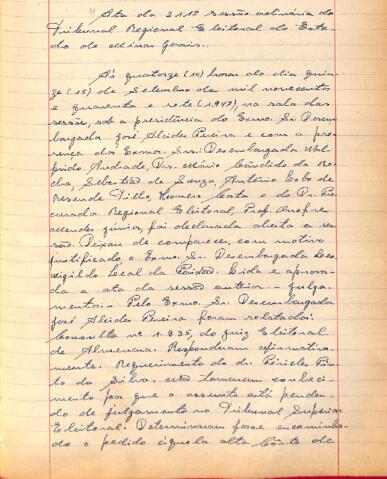 "Ata da 211ª sessão ordinária do
Tribunal Regional Eleitoral do Esta-
do de Minas Gerais.
Ás quatorze (14) horas do dia quin-
ze (15) de Setembro de mil novecentos
e quarenta e sete (1947), na sala das
sessões, sob a presidência do Exmo. Sr. Desem-
bargador José Alcides Pereira e com a pre-
sença dos Exmos. Srs.: Desembargador
Andrade, Drs. Mário Cândido da Ro-
cha, Sebastião de Souza, Antônio Lobo de
Resende Filho, Homero Costa e do Dr. Pro-
curador Regional Eleitoral, Prof. Onofre
Mendes Júnior, foi declarada aberta a ses-
são. Deixou de comparecer, com motivo
justificado, o Exmo. Sr. Desembargador Leo-
vigildo Leal da Paixão. Lida e aprova-
da a ata da sessão anterior. - Julga-
mentos: - Pelo Exmo. Sr. Desembargador
José Alcides Pereira foram relatados:
Consulta nº 1.835, do Juiz Eleitoral
de Almenara. Responderam afirmativa-
mente. Requerimento do dr. Péricles Pin-
to da Silva. Não tomaram conheci-
mento por que o assunto está penden-
do de julgamento no Tribunal Superior
Eleitoral. Determinaram fosse encaminha-
do o pedido àquela alta Côrte de